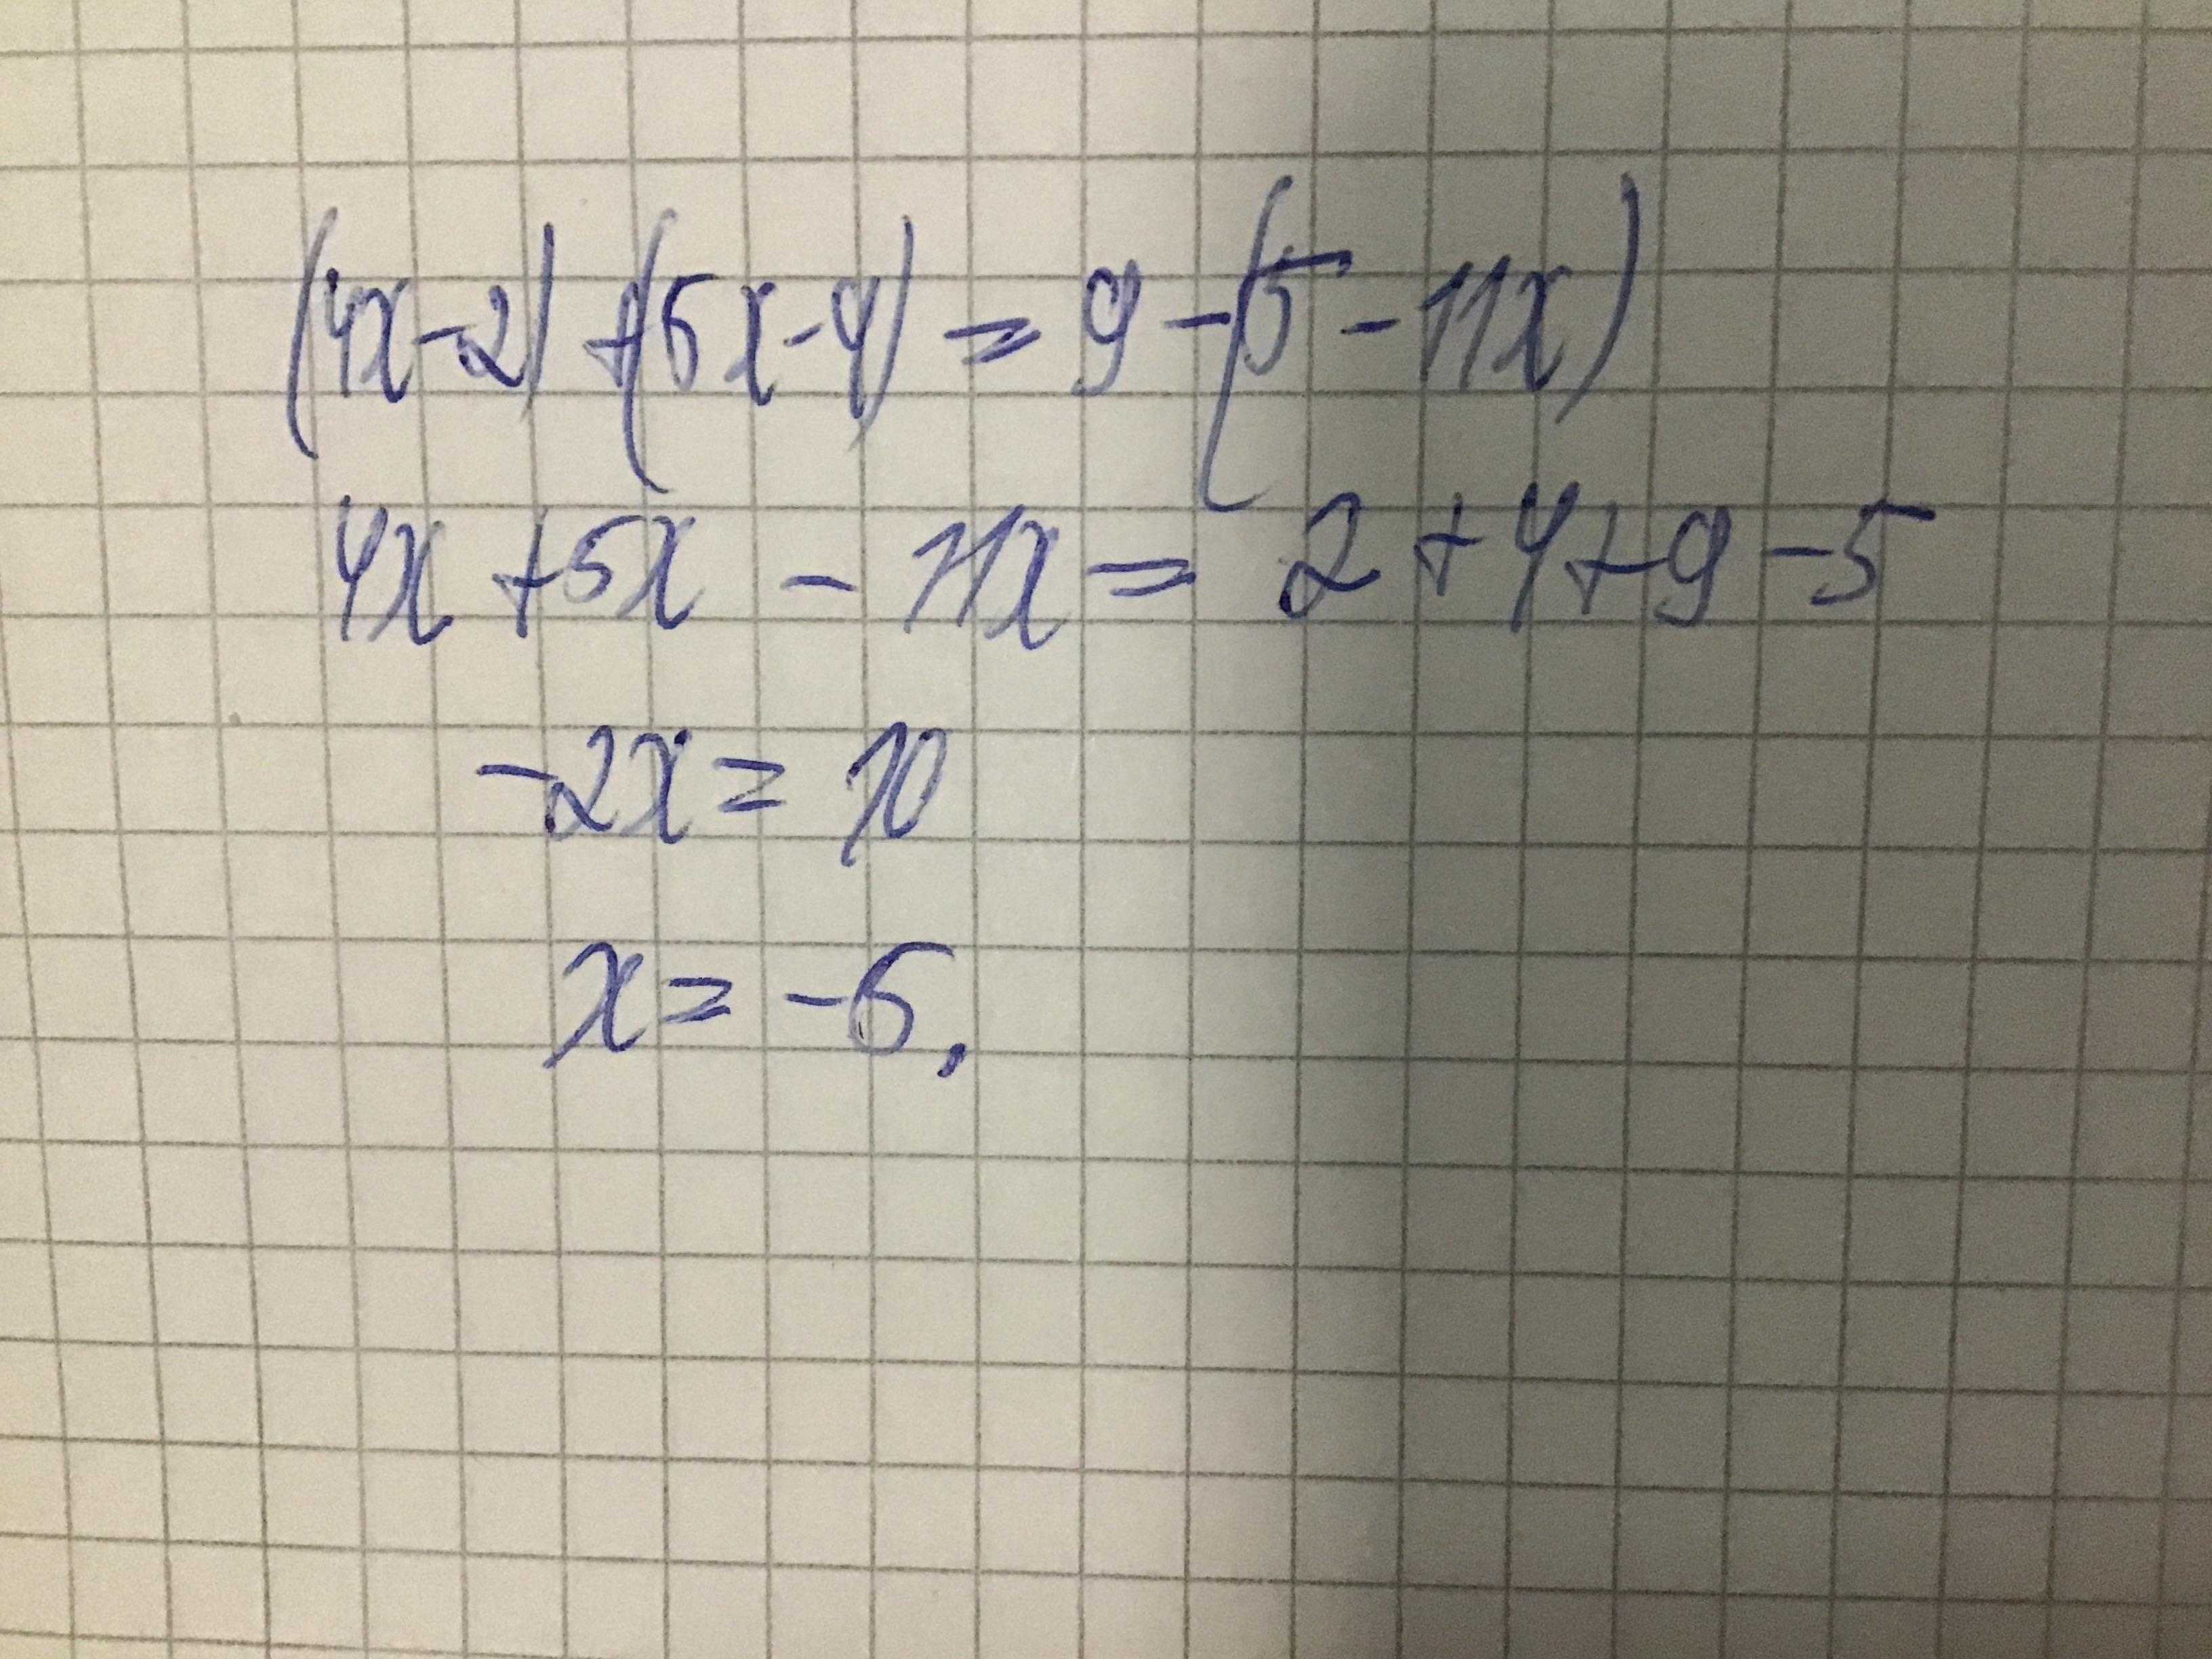 (4x-2)+(5x-4)=9-(5-11x)
4x+5x-11x=2+4+9-5
-2x=10
x=-5.